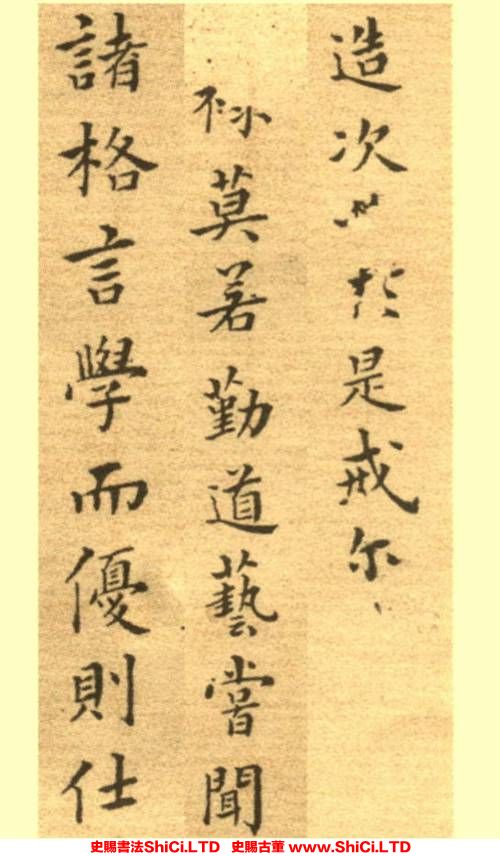 造次必於是戒尔
莫若勤道藝嘗聞
諸格言學而優則仕
史賜書法ShiCi.LTD 史賜古董 www.ShiCi.LTD